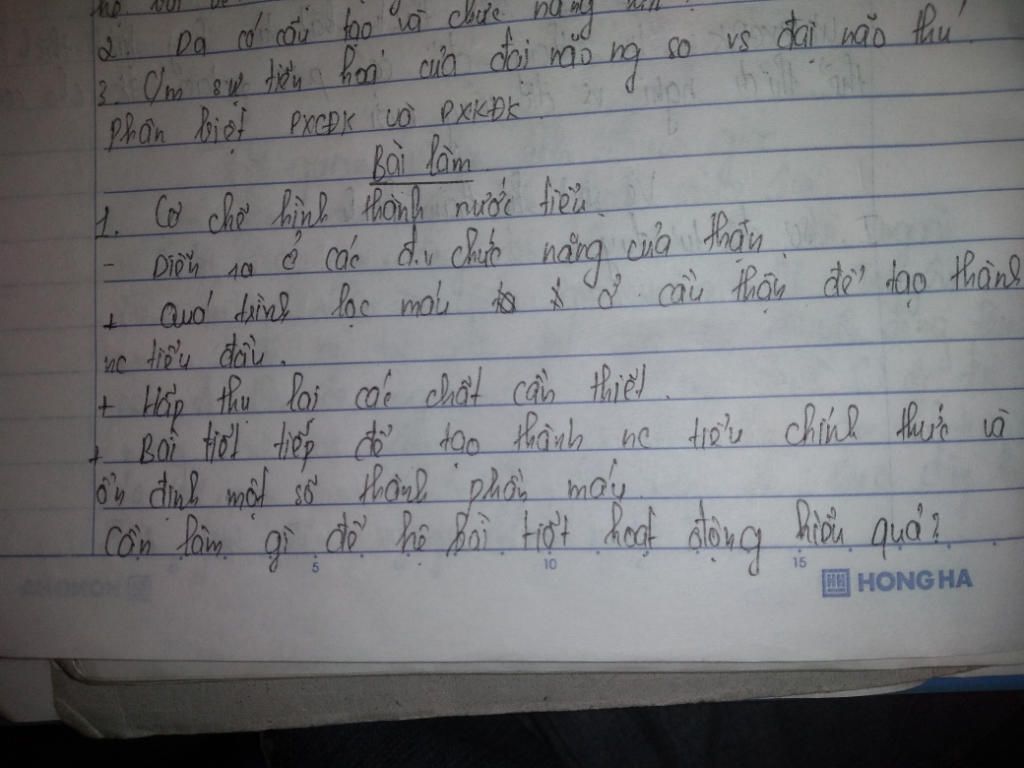 2. Da có cấu tạo và chức năng
3. C/m sự tiến hoá của đại não ng so vs đại não thú.
phân biệt PXCĐK và PXKĐK.
Bài làm
1. Cơ chế hình thành nước tiểu
- Diễn ra ở các đ.v chức năng của thận
+ Quá trình lọc máu ở cầu thận để tạo thành
nc tiểu đầu.
+ Hấp thu lại các chất cần thiết.
+ Bài tiết tiếp để tạo thành nc tiểu chính thức và
ổn định một số thành phần máu.
Cần làm gì để hệ bài tiết hoạt động hiệu quả?
5 10 15
HH HONG HA